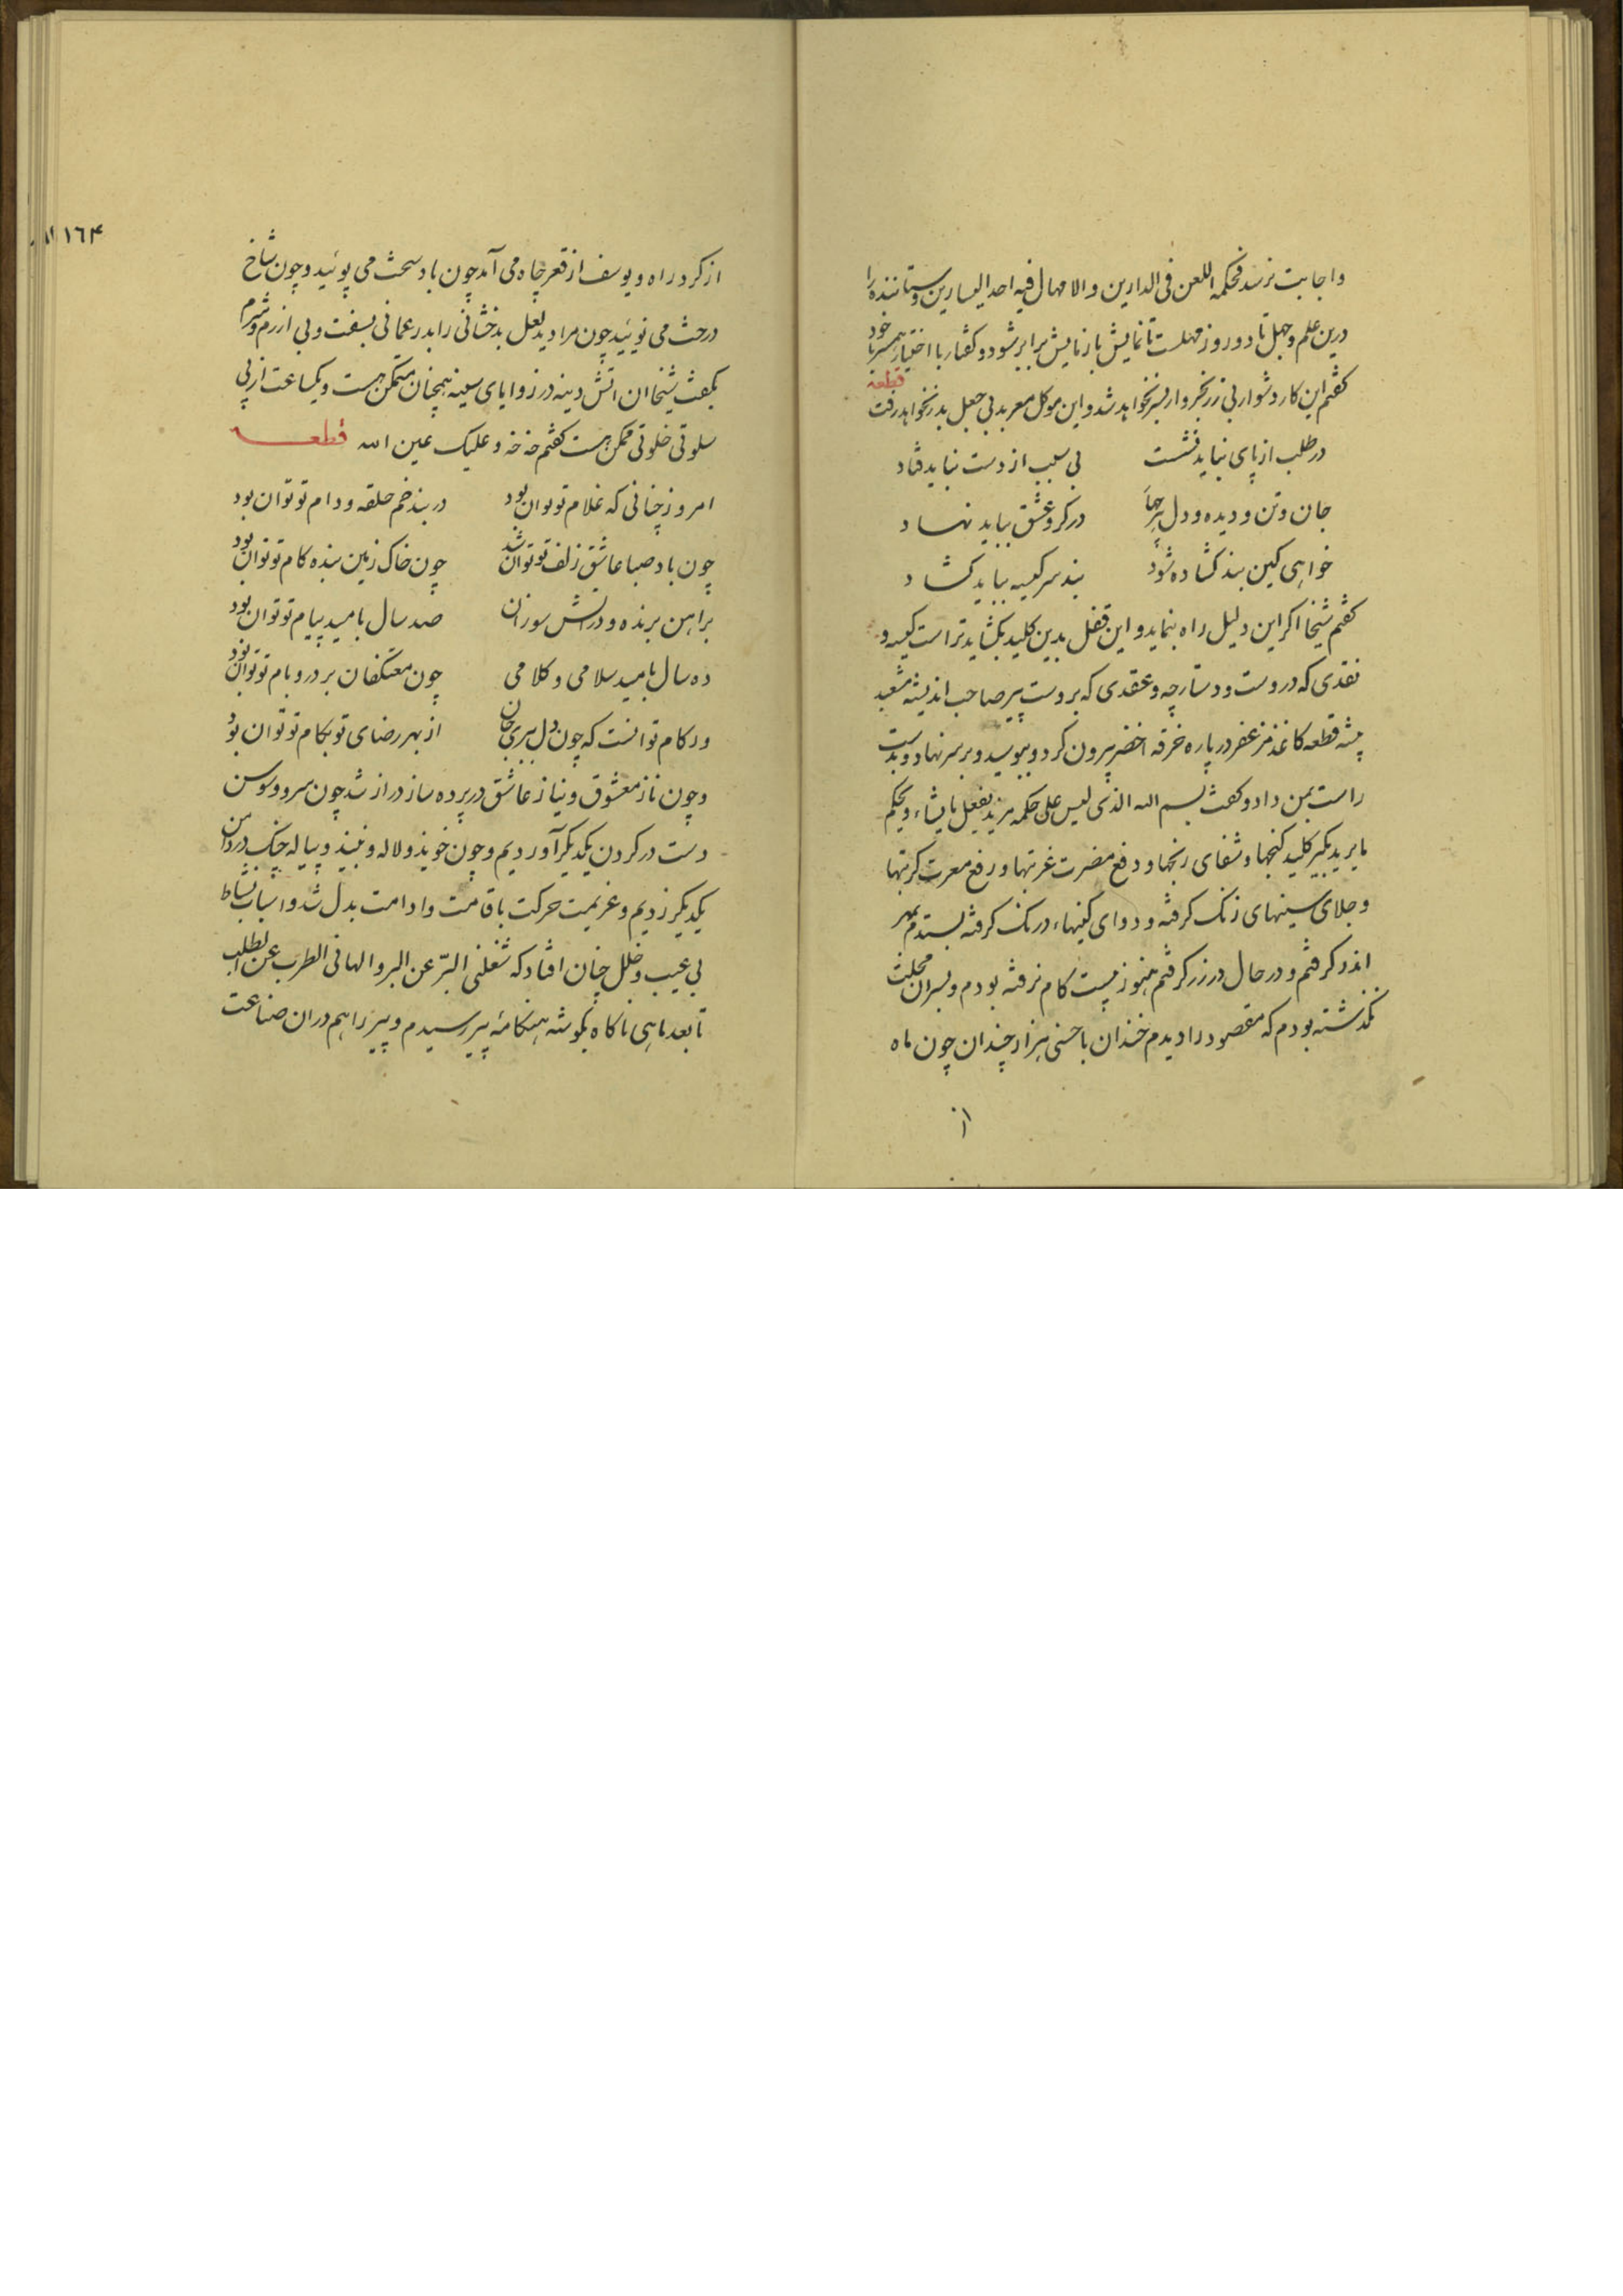 واجابت نرسد فحکمه اللعن فی الدارین والامهال فیه احد الیسارین وستاننده را
درین علم وجهل تا دو روز مهلست تا نمایش بازنایش برابر شود وگفتار با اختیار همسر با خود
گفتم این کار دشوار بی زر نخروار بسر نخواهد شد واین موکل معربد بی جعل بدر نخواهد رفت قطعه
در طلب از پای نباید نشست بی سبب از دست نباید فتاد
جان وتن ودیده ودل هرچهار در کرو عشق بباید نهاد
خواهی کین بند گشاده شود بند سر کیسه بباید گشاد
گفتم شیخا اگر این دلیل راه بنماید و این قفل بدین کلید بگشاید تراست کیسه و
نقدی که در وست ودستارچه وعقدی که بر وست پیر صاحب اندیشه مشعبد
پیشه قطعه کاغذ مزعفر در پاره خرقه اخضر بیرون کرد وببوسید وبر سر نهاد وبدست
راست بمن داد وگفت بسم الله الذی لیس علی حکمه مزید یفعل ما یشاء ویحکم
ما یرید بگیر کلید گنجها وشفای رنجها ودفع مضرت غربتها ورفع معرت کربتها
وجلای سینهای زنگ گرفته ودوای کینهاء درنگ گرفته بستدم بمهر
اندر گرفتم ودر حال در زر گرفتم هنوز بیست گام نرفته بودم وبسر ان محلت
نگذشته بودم که مقصود را دیدم خندان با حسنی هزار چندان چون ماه
از
١٦۴
از کرد راه ویوسف از قعر چاه می آمد چون باد سحت می پوئید وچون شاخ
درخت می نوئید چون مرا دید لعل بدخشانی را بدر عمانی بسفت وبی ازرم وشرم
بگفت شیخا ان اتش دینه در زوایای سینه همچنان متمکن هست ویکساعت از پی
سلوتی خلوتی ممکن هست گفتم خه خه وعلیک عین الله قطعه
امروز چنانی که غلام تو توان بود در بند خم حلقه ودام تو توان بود
چون باد صبا عاشق زلف تو توان شد چون خاک زمین بنده کام تو توان بود
بر اهن برنده ودر اتش سوزان صد سال بامید پیام تو توان بود
ده سال بامید سلامی وکلامی چون معتکفان بر در وبام تو توان بود
ور کام تو انست که چون دل ببری جان از بهر رضای تو بکام تو توان بود
وچون ناز معشوق ونیاز عاشق در پرده ساز دراز شد چون سرو وسوسن
دست در گردن یکدیگر آوردیم وچون خوید ولاله ونبید وپیاله چنگ در دامن
یکدیگر زدیم وعزیمت حرکت باقامت وادامت بدل شد واسباب نشاط
بی عیب وخلل چنان افتاد که شغلنی البر عن البر والهانی الطرب عن الطلب
تا بعد ماهی ناگاه بگوشه هنگامه پیر رسیدم وپیر را هم دران صناعت